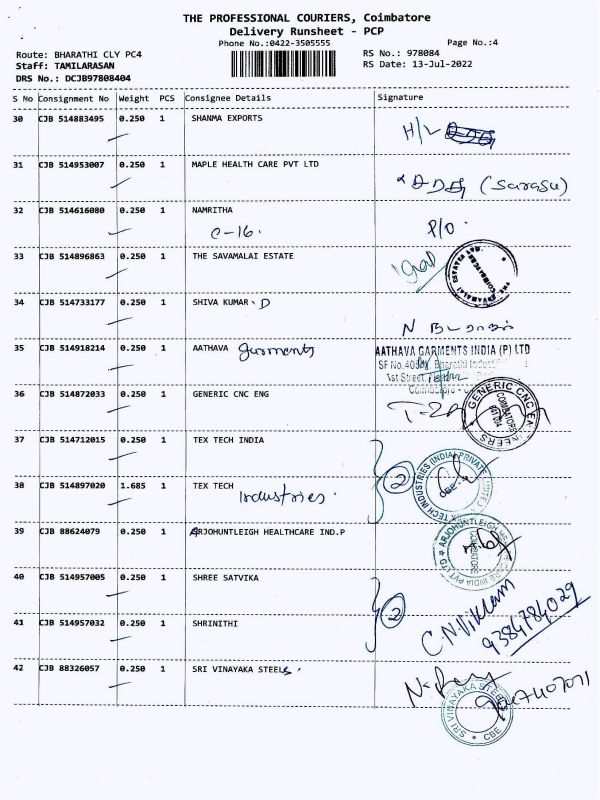 THE PROFESSIONAL COURIERS, Coimbatore
Delivery Runsheet - PCP
Phone No.:0422-3505555 Page No.:4
Route: BHARATHI CLY PC4 RS No.: 978084
Staff: TAMILARASAN RS Date: 13-Jul-2022
DRS No.: DCJB97808404
S No Consignment No Weight PCS Consignee Details Signature
30 CJB 514883495 0.250 1 SHANMA EXPORTS
31 CJB 514953007 0.250 1 MAPLE HEALTH CARE PVT LTD (Sarasu)
32 CJB 514616080 0.250 1 NAMRITHA P/O.
C-16.
33 CJB 514896863 0.250 1 THE SAVAMALAI ESTATE
34 CJB 514733177 0.250 1 SHIVA KUMAR. D
35 CJB 514918214 0.250 1 AATHAVA garments AATHAVA GARMENTS INDIA (P) LTD
1st Street,
36 CJB 514872033 0.250 1 GENERIC CNC ENG GENERIC CNC ENGINEERS COIMBATORE
37 CJB 514712015 0.250 1 TEX TECH INDIA 2 TEX TECH INDUSTRIES (INDIA) PRIVATE LIMITED CBE-4
38 CJB 514897020 1.685 1 TEX TECH Industries.
39 CJB 88624079 0.250 1 ARJOHUNTLEIGH HEALTHCARE IND.P COIMBATORE
40 CJB 514957005 0.250 1 SHREE SATVIKA 2
41 CJB 514957032 0.250 1 SHRINITHI C.N.Vikram
9384784029
42 CJB 88326057 0.250 1 SRI VINAYAKA STEELS. SRI VINAYAKA STEELS CBE